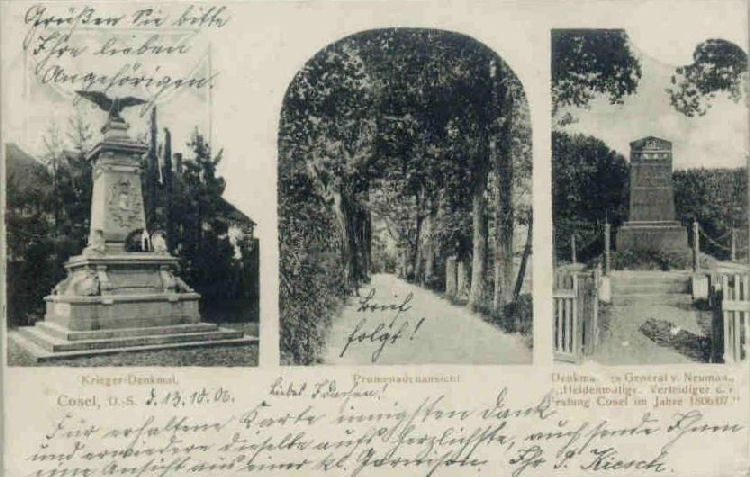 Grüßen Sie bitte
Ihre lieben
Angehörigen.
Brief
folgt!
Krieger-Denkmal.
Promenadenansicht
Denkmal General v. Neumann,
„Heldenmütiger Verteidiger d.
Festung Cosel im Jahre 1806/07."
Cosel, O.-S. d. 13. 10. 06.
Liebes
Für erhaltene Karte innigsten Dank
und erwiedere dieselbe aufs herzlichste, auch sende Ihnen
eine Ansicht aus einer kl. Garnison. Ihr P. Kiesch.